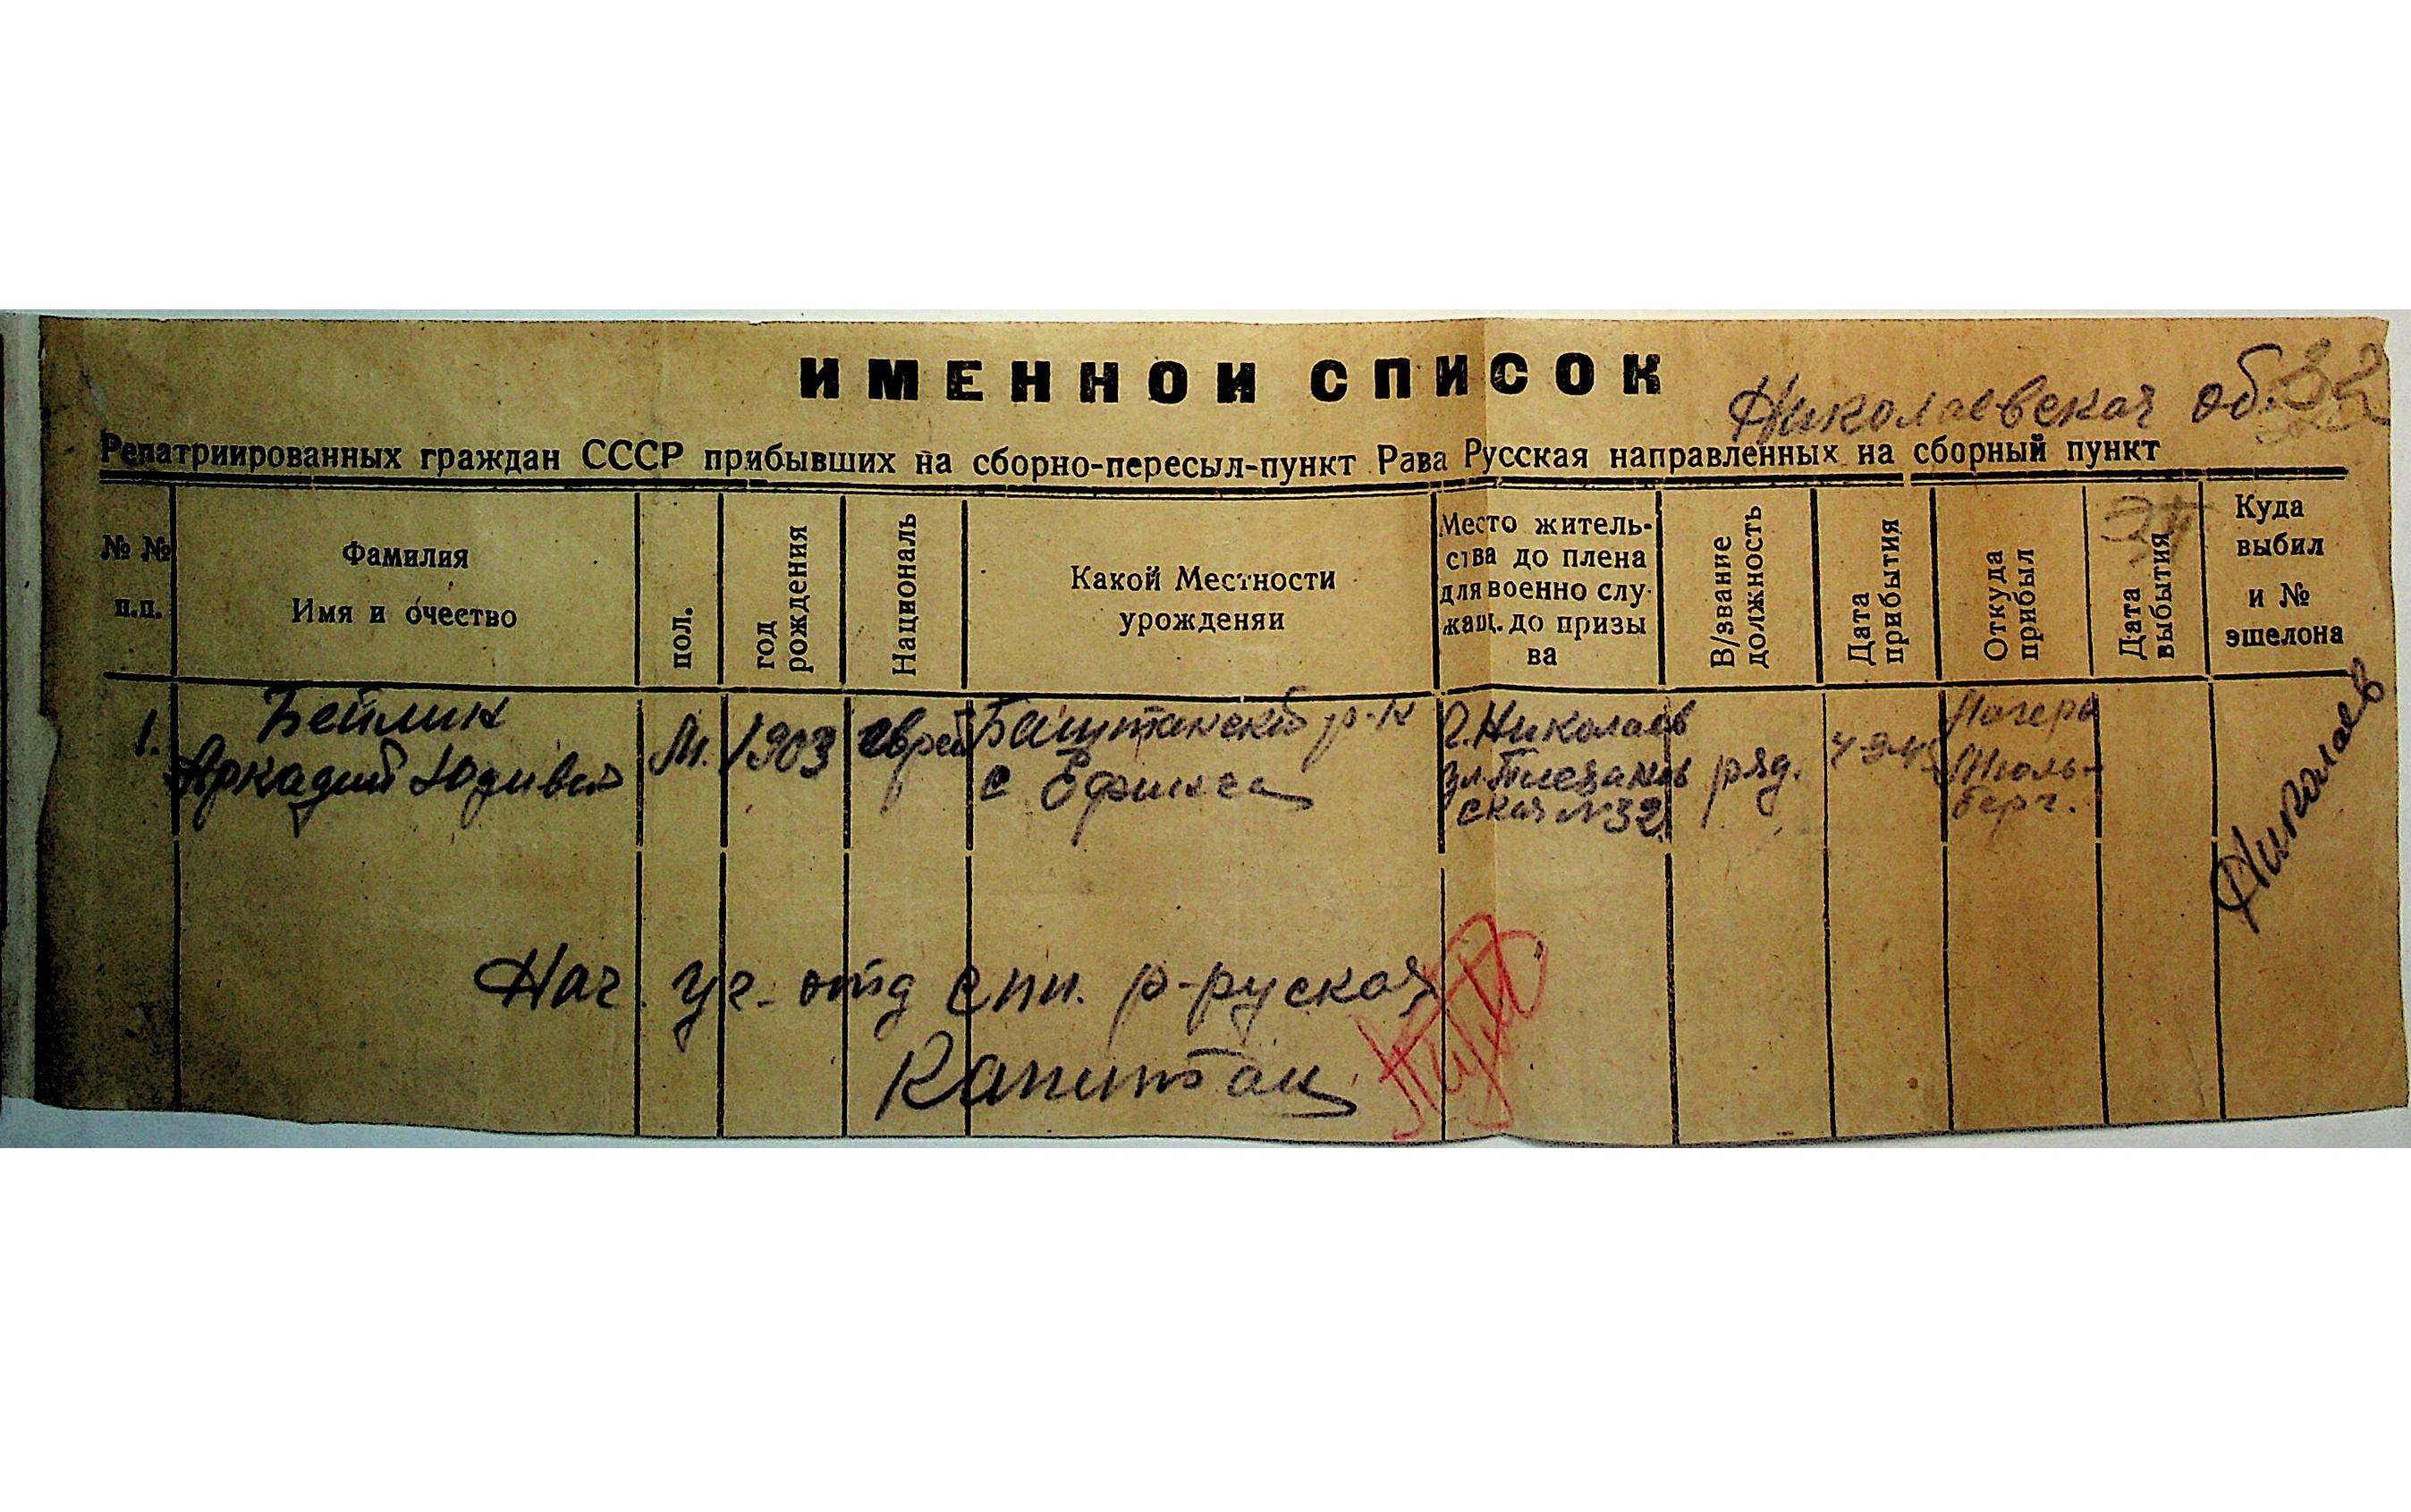 ИМЕННОЙ СПИСОК
Николаевская об.
Репатриированных граждан СССР прибывших на сборно-пересыл-пункт Рава Русская направленных на сборный пункт
№ № п.п.
Фамилия
Имя и очество
пол.
год рождения
Националь
Какой Местности
урожденяи
Место житель-
ства до плена
для военно слу-
жащ. до призы
ва
В/звание
должность
Дата
прибытия
Откуда
прибыл
Дата
выбытия
Куда
выбил
и №
эшелона
1.
Бейлин
Аркадий
М.
1903
еврей
Баштанский р-н
с
г. Николаев
ская №32
ряд.
Лагерь
Мюль-
берг.
Николаев
Нач. уч-отд спп. р-руская
Капитан